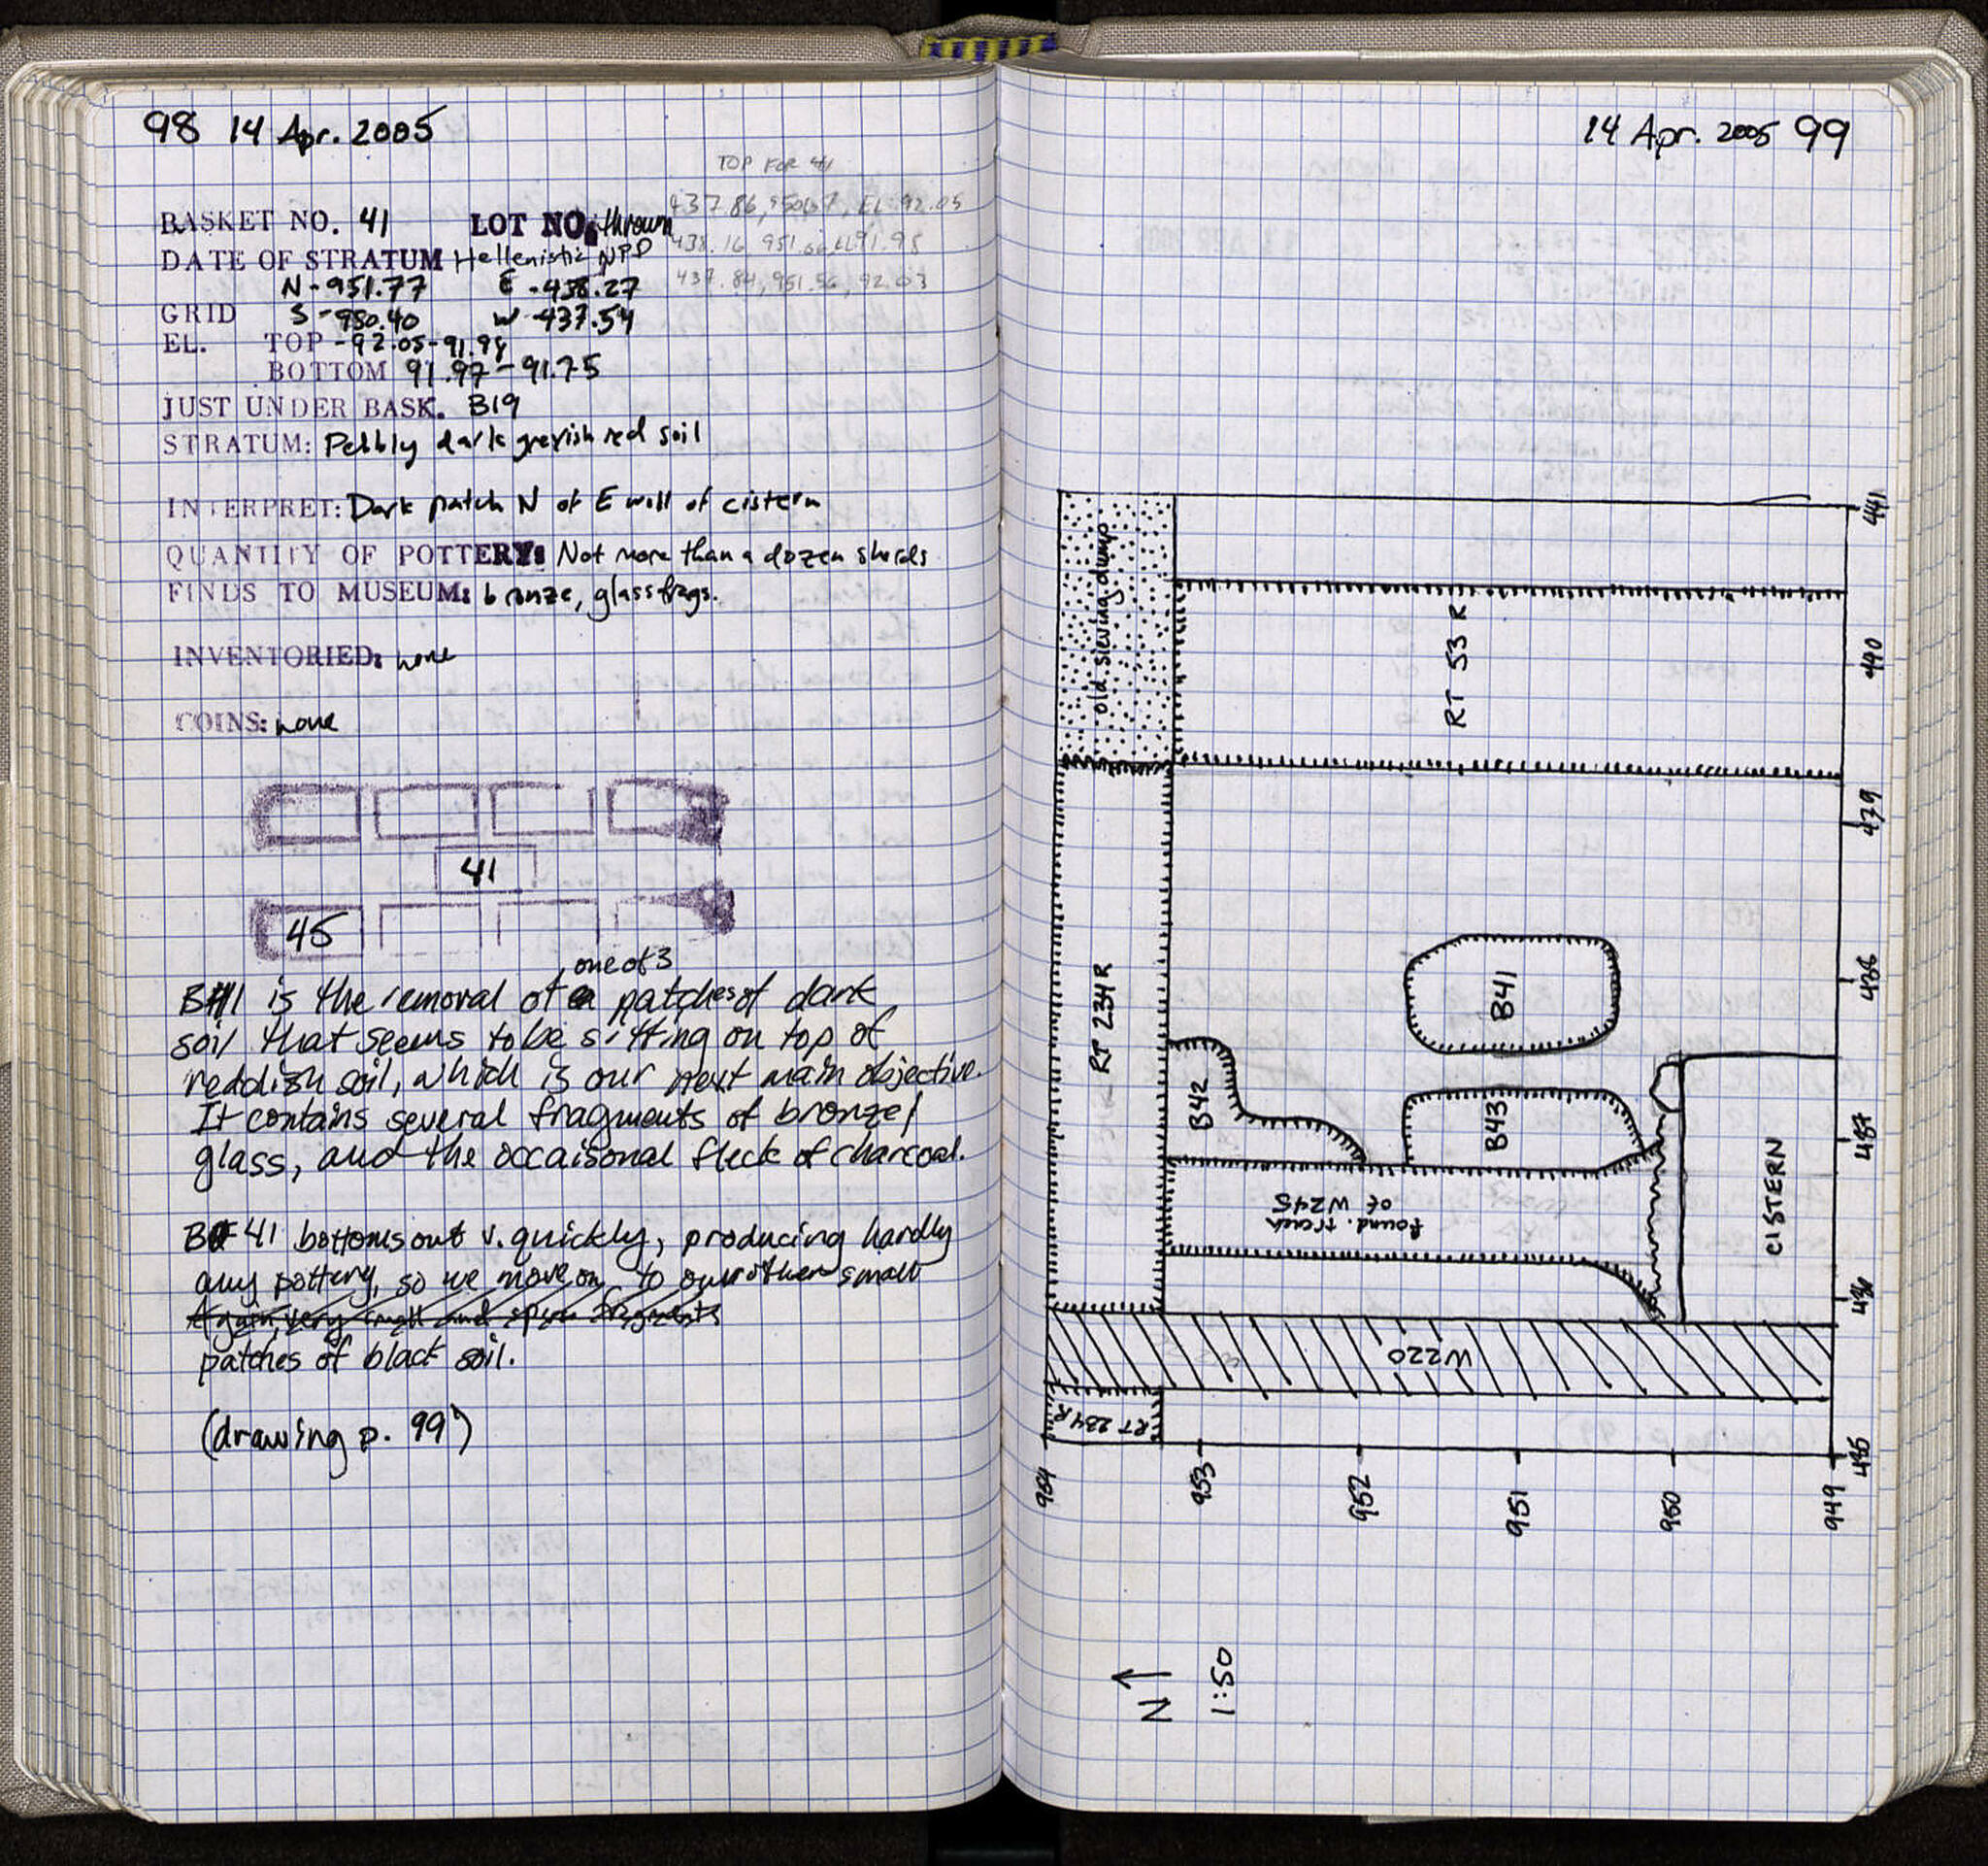 98 14 Apr. 2005
TOP FOR 41
437.86, 950.67, EL 92.05
438.16 951.66, EL 91.98
437.84, 951.56, 92.03
BASKET NO. 41 LOT NO. thrown
DATE OF STRATUM Hellenistic NPD
N - 951.77 E - 438.27
GRID S - 950.40 W - 437.54
EL. TOP - 92.05 - 91.98
BOTTOM 91.97 - 91.75
JUST UNDER BASK. B19
STRATUM: Pebbly dark greyish red soil
INTERPRET: Dark patch N of E wall of cistern
QUANTITY OF POTTERY: Not more than a dozen sherds
FINDS TO MUSEUM: bronze, glass frags.
INVENTORIED: none
COINS: none
41
45
one of 3
B41 is the removal of patches of dark
soil that seems to be sitting on top of
reddish soil, which is our next main objective.
It contains several fragments of bronze/
glass, and the occaisonal fleck of charcoal.
B 41 bottoms out v. quickly, producing hardly
any pottery, so we move on to our other small
Again, very small and sparse fragments
patches of black soil.
(drawing p. 99)
14 Apr. 2005 99
old sieving dump
RT 53 R
RT 234 R
B41
B42
B43
Found. trench
of W245
CISTERN
W220
RT 234 R
441
440
439
438
437
436
435
954
953
952
951
950
949
N
1:50